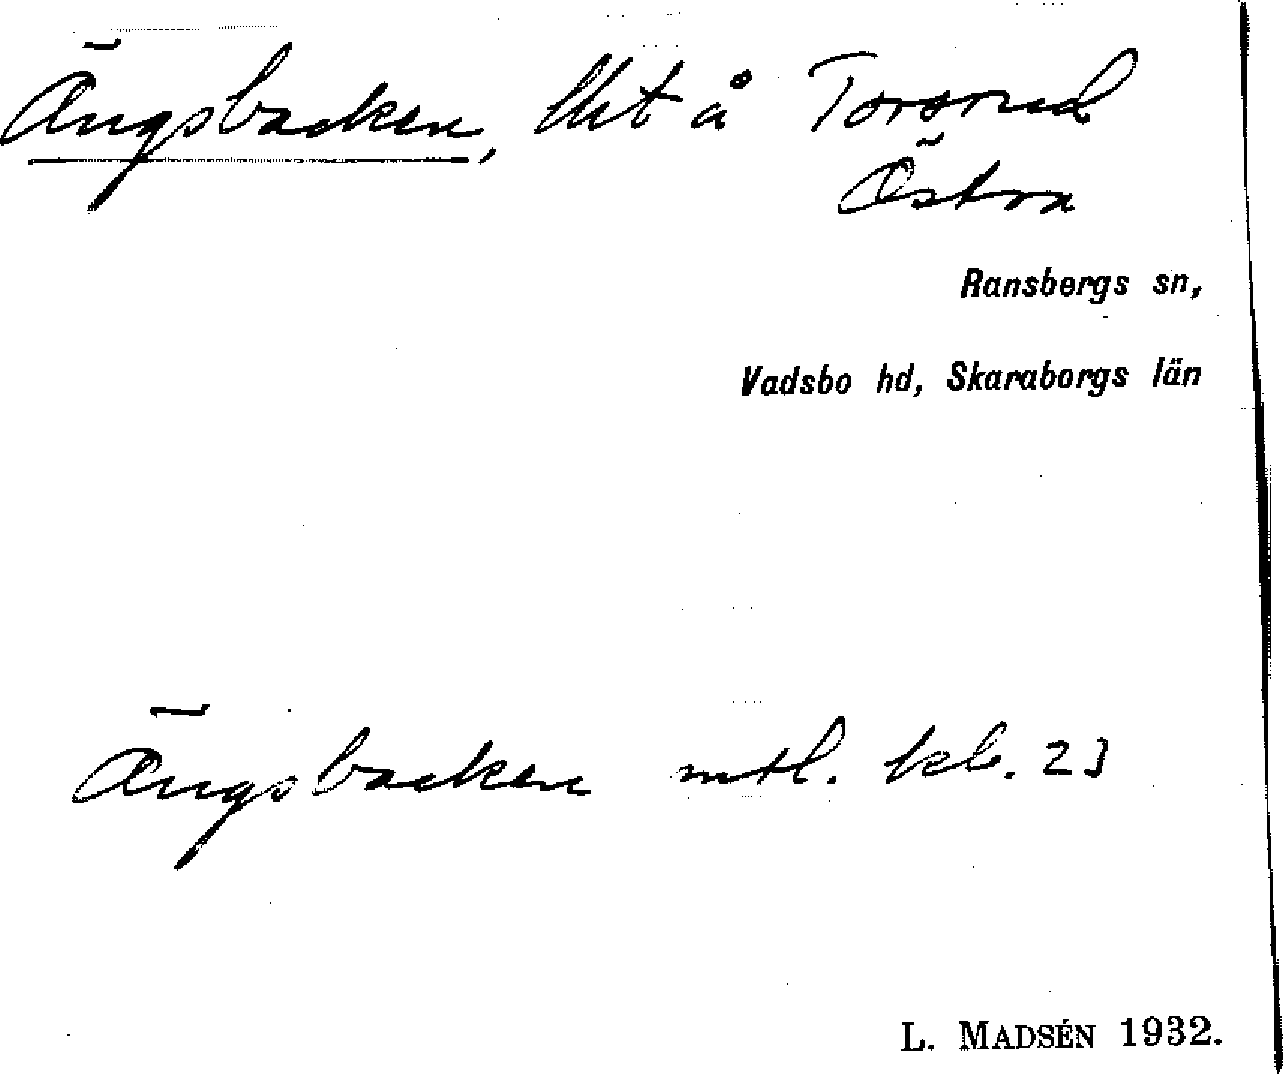 Ängsbacken, lht å Torsrud
Östra
Ransbergs sn,
Vadsbo hd, Skaraborgs län
Ängsbacken mtl. kb. 23
L. MADSÉN 1932.